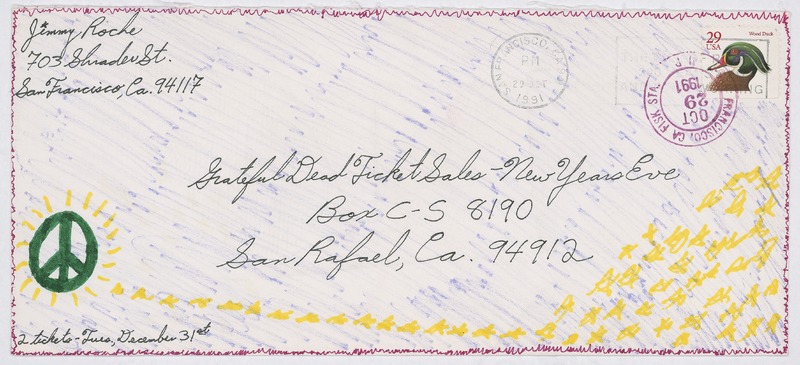 Jimmy Roche
703 Shrader St.
San Francisco, Ca. 94117
SAN FRANCISCO, CA
PM
29 OCT
1991
29
USA
Wood Duck
FRANCISCO, CA FISK STA.
OCT
29
1991
Grateful Dead Ticket Sales - New Years Eve
Box C-S 8190
San Rafael, Ca. 94912
2 tickets - Tues, December 31st